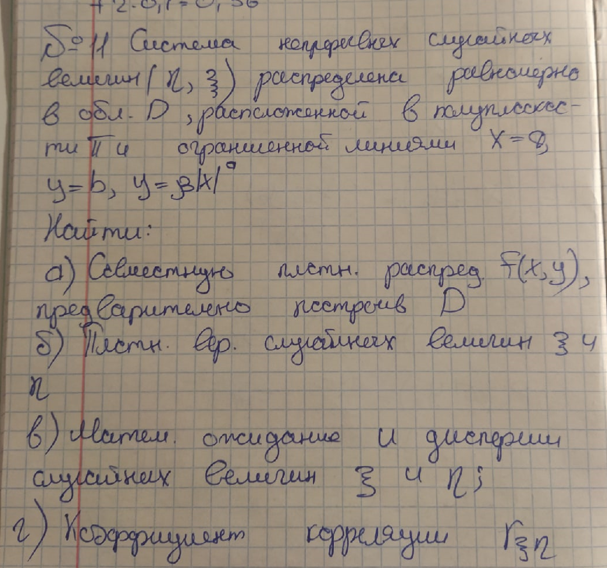 + 2·0,1=0,56
№ 11 Система непрерывных случайных
величин (η, ξ) распределена равномерно
в обл. D, расположенной в полуплоскос-
ти П и ограниченной линиями x=0,
y=b, y=β|x|ᵃ
Найти:
а) Совместную плтн. распред f(x,y),
предварительно построив D
б) Плтн. вер. случайных величин ξ и
η
в) Матем. ожидание и дисперсии
случайных величин ξ и η;
г) Коэффициент корреляции rξη